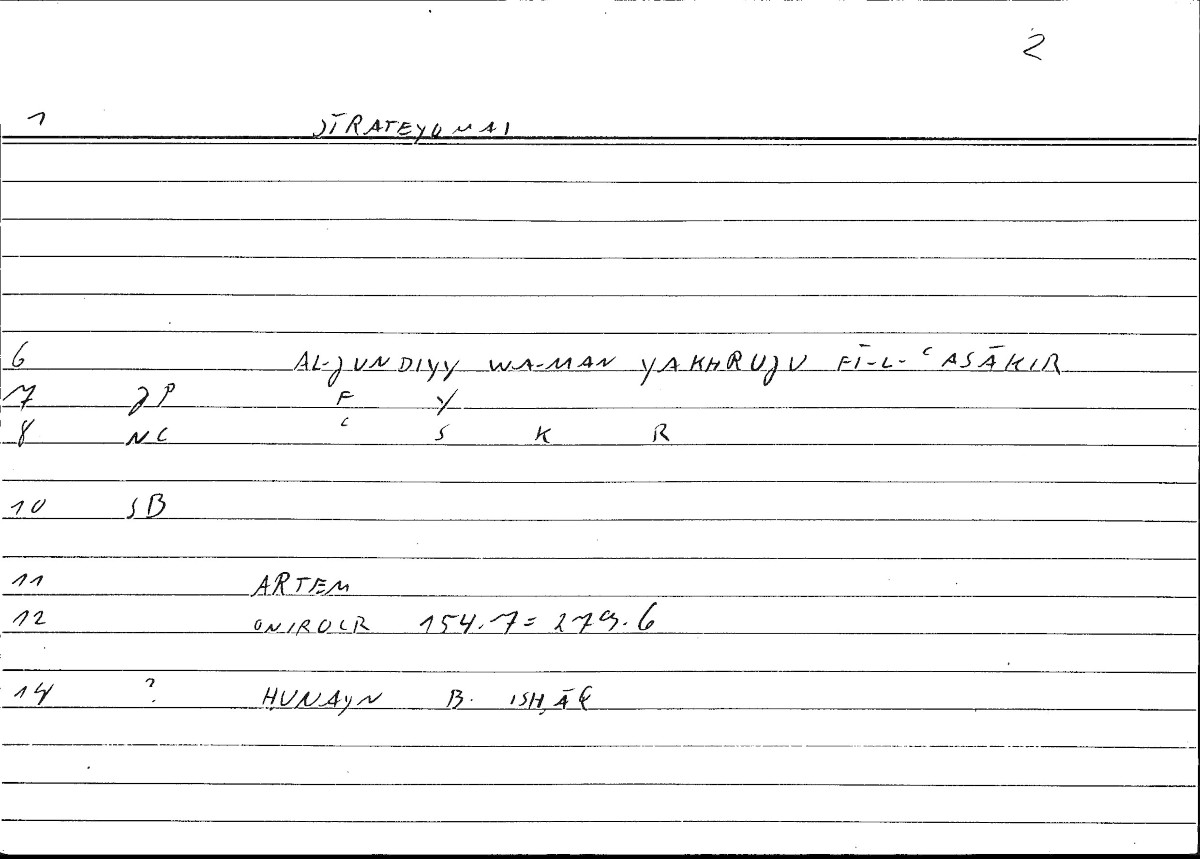 2
1 STRATEYOMAI
6 AL-JUNDIYY WA-MAN YAKHRUJU FĪ-L-ʿASĀKIR
7 JP F Y
8 NC ʿ S K R
10 SB
11 ARTEM
12 ONIROCR 154.7 = 279.6
14 ? ḤUNAYN B. ISḤĀQ